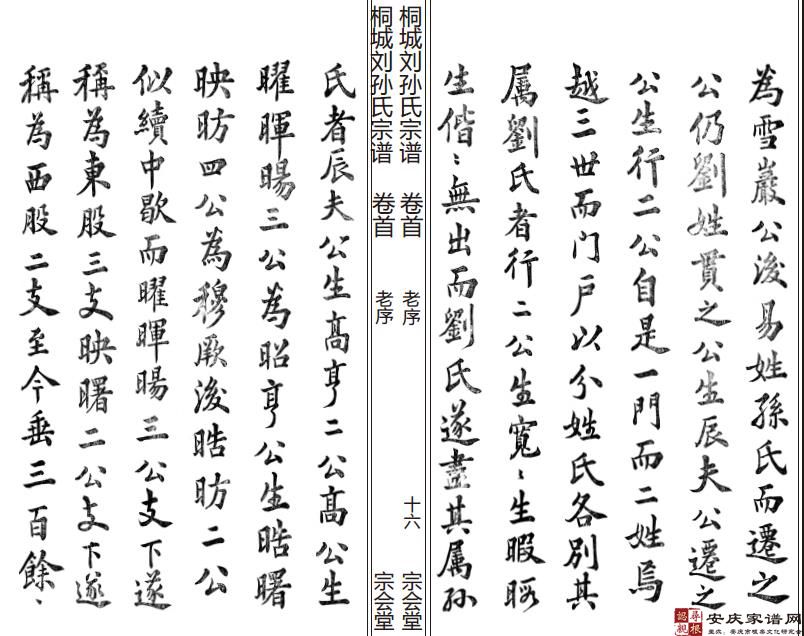 為雪巖公後易姓孫氏而遷之
公仍劉姓貫之公生辰夫公遷之
公生行二公自是一門而二姓焉
越三世而門戶以分姓氏各別其
属劉氏者行二公生寬〻生暇暊
生偕〻無出而劉氏遂盡其属孙
桐城刘孙氏宗谱 卷首 老序 十六 宗会堂
桐城刘孙氏宗谱 卷首 老序 宗会堂
氏者辰夫公生髙亨二公髙公生
曜暉暘三公為昭亨公生晧曙
映昉四公為穆厥後晧昉二公
似續中歇而曜暉暘三公支下遂
稱為東股三支映曙二公支下遂
稱為西股二支至今垂三百餘〻
安庆家谱网